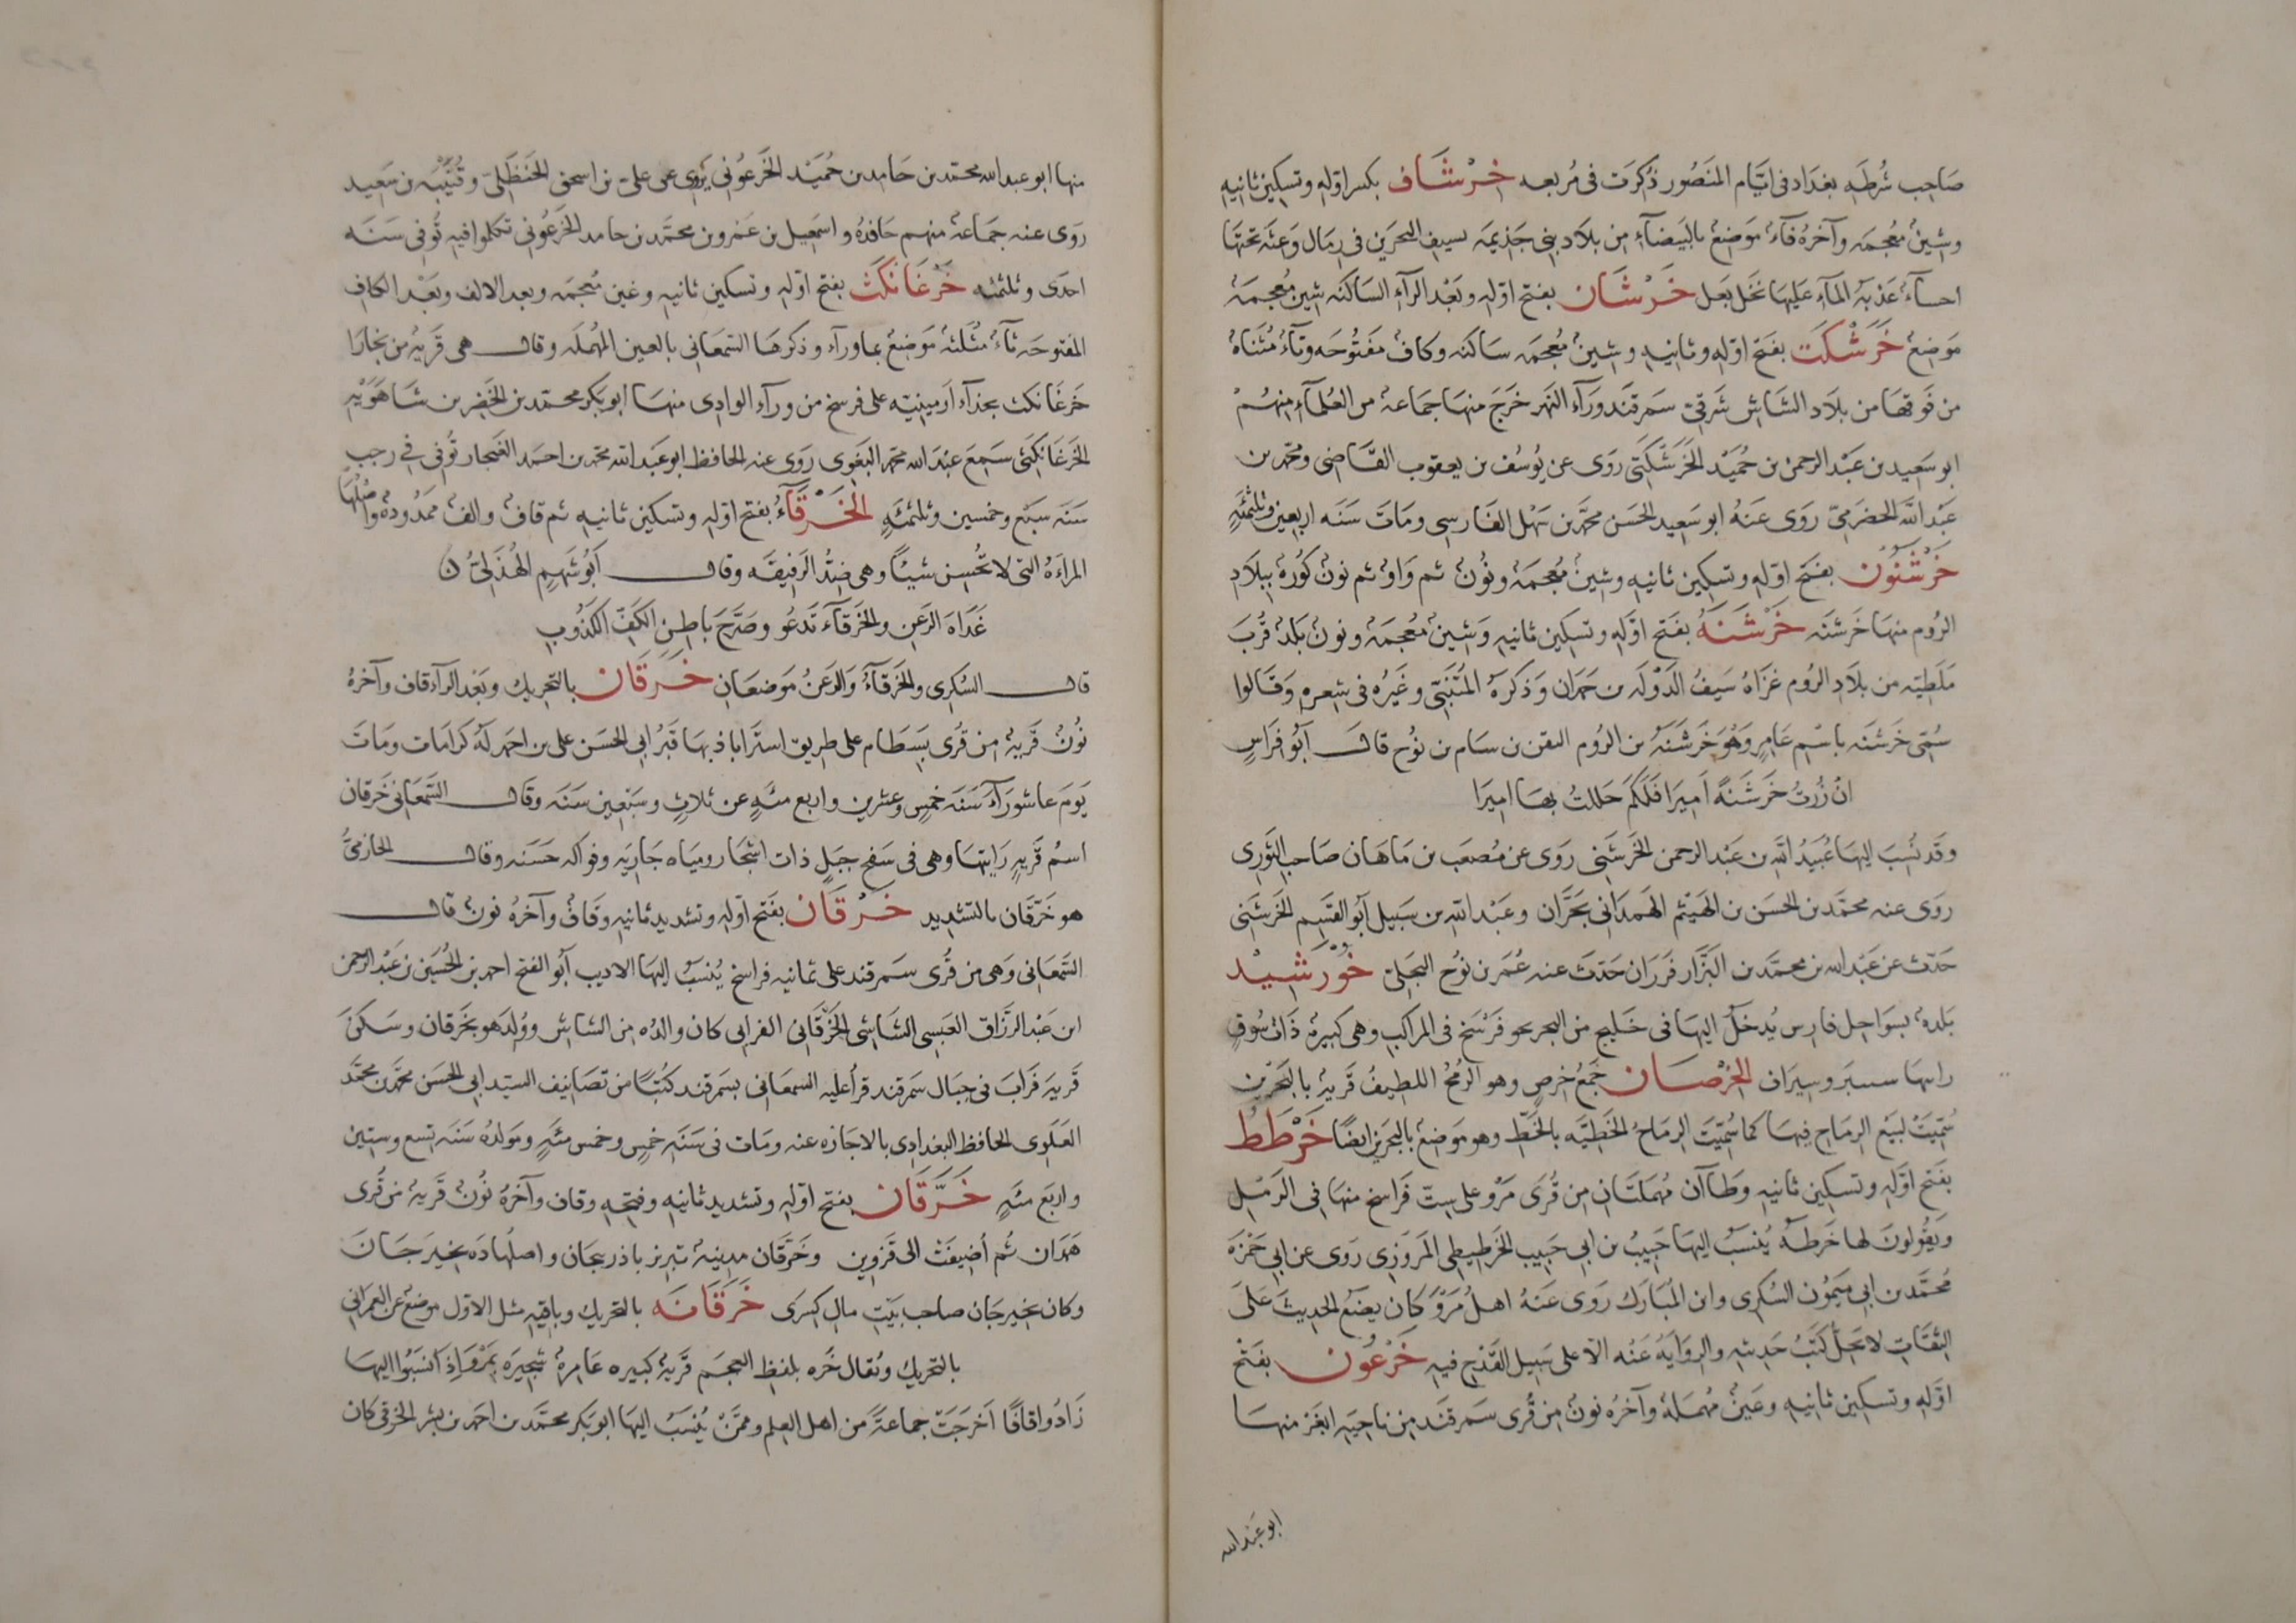 صَاحِب شُرطَهِ بغدَاد فى ايّام المَنصُور ذُكرَت فى مُربعه خِرْشَاف بكسر اوّله وتسكين ثانيه
وشينُ مُعجمَه وآخرُه فآءُ مَوضِعُ بالبَيضآءِ من بلَاد بنى جَذيمَه لسيف البحرَين فى رمَال وَعثَه تحتها
احسآءُ عَذبهُ المآءِ عليهَا نخَل بَعل خَرْشَان بفتح اوّلهِ وبَعْد الرآءِ السَاكنَه شين مُعجمَهُ
مَوضِعُ خَرَشْكَت بفَتح اوّلهِ وثانِيهِ وشينُ مُعجمَه سَاكنَه وكافُ مفَتُوحَه وتآءُ مُثناهُ
من فَوقهَا من بلَاد الشَاش شَرقىّ سَمرقَند ورَآء النَهر خَرَجَ منهَا جَمَاعهُ من العُلمآءِ منهُمْ
ابو سَعِيد بن عَبْد الرحمن بن حُمَيْد الخَرَشْكَتى رَوَى عن يُوسُف بن يعقوب القَاضى ومحمد بن
عَبْد اللَّه الحضرَمىّ رَوَى عَنهُ ابو سَعِيد الحَسَن محمَّد بن سَهْل الفَارسى ومَاتَ سَنَه اربعين وثلثمَئهٍ
خَرْشَنُون بفَتح اوّلهِ وتسكين ثانيهِ وشينُ مُعجمَهُ ونُونُ ثم وَاوُ ثم نونُ كُورَهُ ببلَادِ
الرُوم منهَا خَرشَنَه خَرْشَنَهُ بفَتح اوّلهِ وتسكين ثانيهِ وَشينُ مُعجمَهُ ونونُ بَلدُ قُربَ
مَلَطيَه من بلَاد الرُوم غزَاهُ سَيفُ الدَوْلَه بن حَمدَان وَذكرَهُ المُتَنَبّى وغَيرُه فى شِعرهِ وَقَالوا
سُمِّى خَرشَنَه باسْم عَامِرٍ وَهُوَ خَرشَنَهُ بن الرُوم اليقن بن سَام بن نُوح قال أبُو فراسٍ
انْ زُرتُ خَرشَنَهً اَمِيرا فَلَكَم حَللتُ بهَا اميرَا
وقَد نُسِبَ اليهَا عُبَيدُ اللَّه بن عَبْد الرحمن الخَرشَنى رَوَى عن مُصعَب بن مَاهَان صَاحب الثَورى
رَوَى عنه محمَّد بن الحسَن بن الهَيْثم الهَمدَانى بحَرَّان وعَبْد اللَّه بن سَبيل أبُو القَسِم الخرشَنى
حَدّث عن عَبْد الله بن محمَّد بن البَزَّار فَرَرَان حَدّثَ عنه عُمَر بن نُوح البَجَلىّ خُوْرَشيْد
بَلدهُ بسوَاحل فارس يُدخَلُ اليهَا فى خَليج من البحر نحو فَرْسَخ فى المراكب وهى كبيرهُ ذَاتُ سُوقٍ
رايتهَا بَيْن وسيرَاف الخِرْصَان جَمعُ خِرصٍ وهو الرُمحُ اللطيفُ قَريهُ بالبَحْرَين
سُمّيَتْ لبَيْع الرمَاح فيهَا كما سُمّيَت الرمَاحُ الخَطيّه بالخَطّ وهو مَوضِعُ بالبحرَين ايضًا خَرْطَطُ
بفَتح اوّلهِ وتسكين ثانيهِ وَطَاآن مُهمَلَتَانِ مِن قُرَى مَرْو على سِتّ فَرَاسخ منهَا فى الرَمْل
وَيقُولونَ لهَا خَرطَه يُنسَبُ اليهَا حَبيبُ بن ابى حَبيب الخَرْطِيطى المَروَزى رَوَى عن ابى حَمْزَه
مُحَمَّد بن ابى مَيمُون السُكرى وابن المُبَارَك رَوَى عَنهُ اهلُ مَرْوَ كان يضَعُ الحديثَ عَلَى
الثقَاتِ لا يَحِلُّ كَتبُ حَديثهِ والروَايَهُ عَنهُ الّا على سَبيل القَدْح فيهِ خَرْعُون بفَتْح
اوّلهِ وتسكين ثانيهِ وعَينُ مُهمَلهُ وآخرُه نونُ من قُرى سَمرقَند مِن ناحيَهِ ابغَر منهَا
ابو عَبْد الله
منها ابو عبد الله محمّد بن حَامِد بن حُمَيْد الخَرعُونى يَروى عن علىّ بن اسحق الحَنظَلىّ وقُتَيْبَه بن سَعيد
رَوَى عنه جَمَاعهُ منهم حَافدُه واسمَعيل بن عَمرو بن محمَّد بن حامد الخَرعُونى تكلموا فيه تُوفى سَنَه
احدَى وثلثمئه خَرْغَانْكَث بفتح اوّلهِ وتسكين ثانيهِ وغين مُعجمَه وبعد الالف وبَعْد الكاف
المفتوحَه ثآءُ مثلثَهُ مَوضِعُ بماورآء وذكرهَا السَمعَانى بالعين المُهمَله وقال هى قَريهُ من بخارَا
خَرغَانكث بحذآء اَرمينيَه على فرسخ من ورآء الوادى منهَا ابو بَكر محمّد بن الخَضِر بن شَاهَوَيْهِ
الخَرغَانكثى سَمِعَ عبْدَ الله محمد البَغَوى رَوَى عنه الحافظ ابو عَبد الله محمد بن احمَد الغُنجار تُوفى فى رجب
سَنَه سَبع وخمسين وثلثمئَهٍ الخَرْقَآءُ بفتح اوّلهِ وتسكين ثانيهِ ثم قافُ والفُ ممَدُودهُ واصْلهَا
المراَهُ التى لا تُحْسِن شيئاً وهى ضِدُّ الرَفيقَه وقال أبُو سَهمٍ الهُذَلىُّ ن
غَدَاهَ الرَعنِ والخَرقآءَ تَدعُو وصَرّحَ باطِن الكَفّ الكَذُوبِ
قال السُكرى والخَرَقآءُ وَالرَعنُ مَوضعَانِ خَرَقَان بالتحريك وبَعْد الرآءِ قاف وآخرُه
نُونُ قَريهُ من قُرى بَسطَام على طريق استَراباذ بهَا قَبرُ ابى الحسَن على بن احمد لَهُ كرَامَات ومَاتَ
يَومَ عاشورَآءَ سَنَه خمسٍ وعشرين واربع مئَهٍ عن ثلاثٍ وسَبْعين سَنَه وقَال السَّمعَانى خَرقان
اسمُ قَريهٍ رَايتهَا وهى فى سَفح جبَلٍ ذات اشجَار ومياه جَاريَه وفوَاكه حَسَنه وقال الحازمىُّ
هو خَرّقان بالتشديد خَرّقَان بفَتح اوّلهِ وتشديد ثانيهِ وقَافُ وآخرُه نونُ قال
السَمعَانى وَهى من قُرى سَمرقند على ثمانيه فراسخ يُنسَبُ اليهَا الاديب أبُو الفتح احمد بن الحُسَين بن عَبْد الرحمن
ابن عَبْد الرزّاق العَبسى الشَاشى الخَرّقَانى الفرابى كان والدُه من الشاش ووُلدَ هو بخَرقان وسَكنَ
قَريَه فَرَابَ فى جبَال سَمرقند قرأ عليه السمعَانى بسَمرقند كُتبًا من تصَانيف السَيّد ابى الحسَن محمَّد بن محمَّد
العَلَوى الحافظ البغدَادى بالاجَازه عنه ومَات فى سَنَهِ خمسٍ وخمس مئَهٍ ومَولدُه سَنَه تسع وستين
واربَع مئَهٍ خَرَّقَان بفتح اوّلهِ وتشديد ثانيهِ وفتحهِ وقاف وآخرُه نُونُ قَريهُ من قُرى
هَمدَان ثُم أُضيفَتْ الى قَزوين وخَرَّقان مدينهُ تبريز باذربيجَان واصلُهَا دَه نخيرَجَان
وكان نخيرجَان صاحب بَيت مال كِسرَى خَرَقَانَه بالتحريك وباقيهِ مثل الاوّل موضعُ عن العِمرَانى
بالتحريك ويُقال خَرَه بلفظ العجَم قَريهُ كبيره عَامرهُ شجيرَه بمَرْوَ اِذَا نسَبُوا اليهَا
زَادُوا قافًا اَخرَجَتْ جماعةً من اهل العِلم وممَّنْ يُنسَبُ اليهَا ابو بَكر محمَّد بن احمَد بن بشر الخرَقى كان